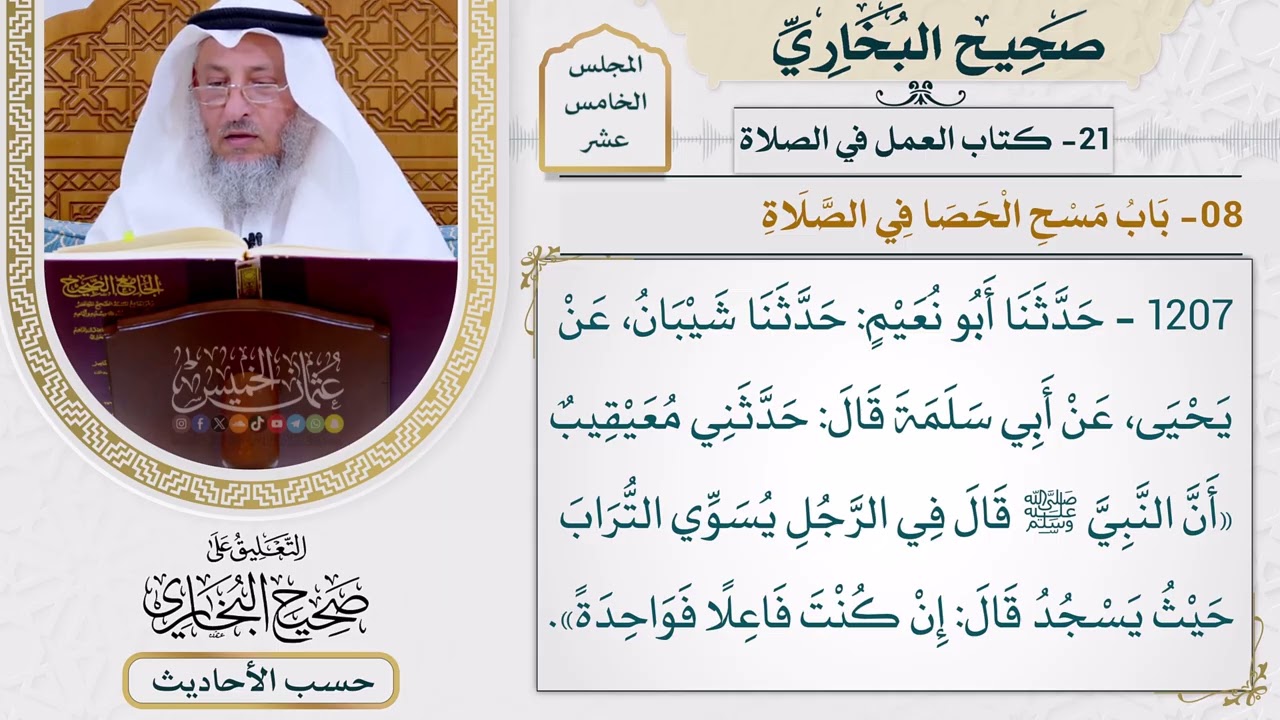 صَحِيح البُخَارِيِّ
المجلس
الخامس
عشر
21- كتاب العمل في الصلاة
08- بَابُ مَسْحِ الْحَصَا فِي الصَّلَاةِ
1207 - حَدَّثَنَا أَبُو نُعَيْمٍ: حَدَّثَنَا شَيْبَانُ، عَنْ
يَحْيَى، عَنْ أَبِي سَلَمَةَ قَالَ: حَدَّثَنِي مُعَيْقِيبٌ
«أَنَّ النَّبِيَّ ﷺ قَالَ فِي الرَّجُلِ يُسَوِّي التُّرَابَ
حَيْثُ يَسْجُدُ قَالَ: إِنْ كُنْتَ فَاعِلًا فَوَاحِدَةً».
الجامع الصحيح
عُثمَان الخميس
التَّعَلِيقُ عَلَى
صَحِيحُ البُخَارِي
حسب الأحاديث